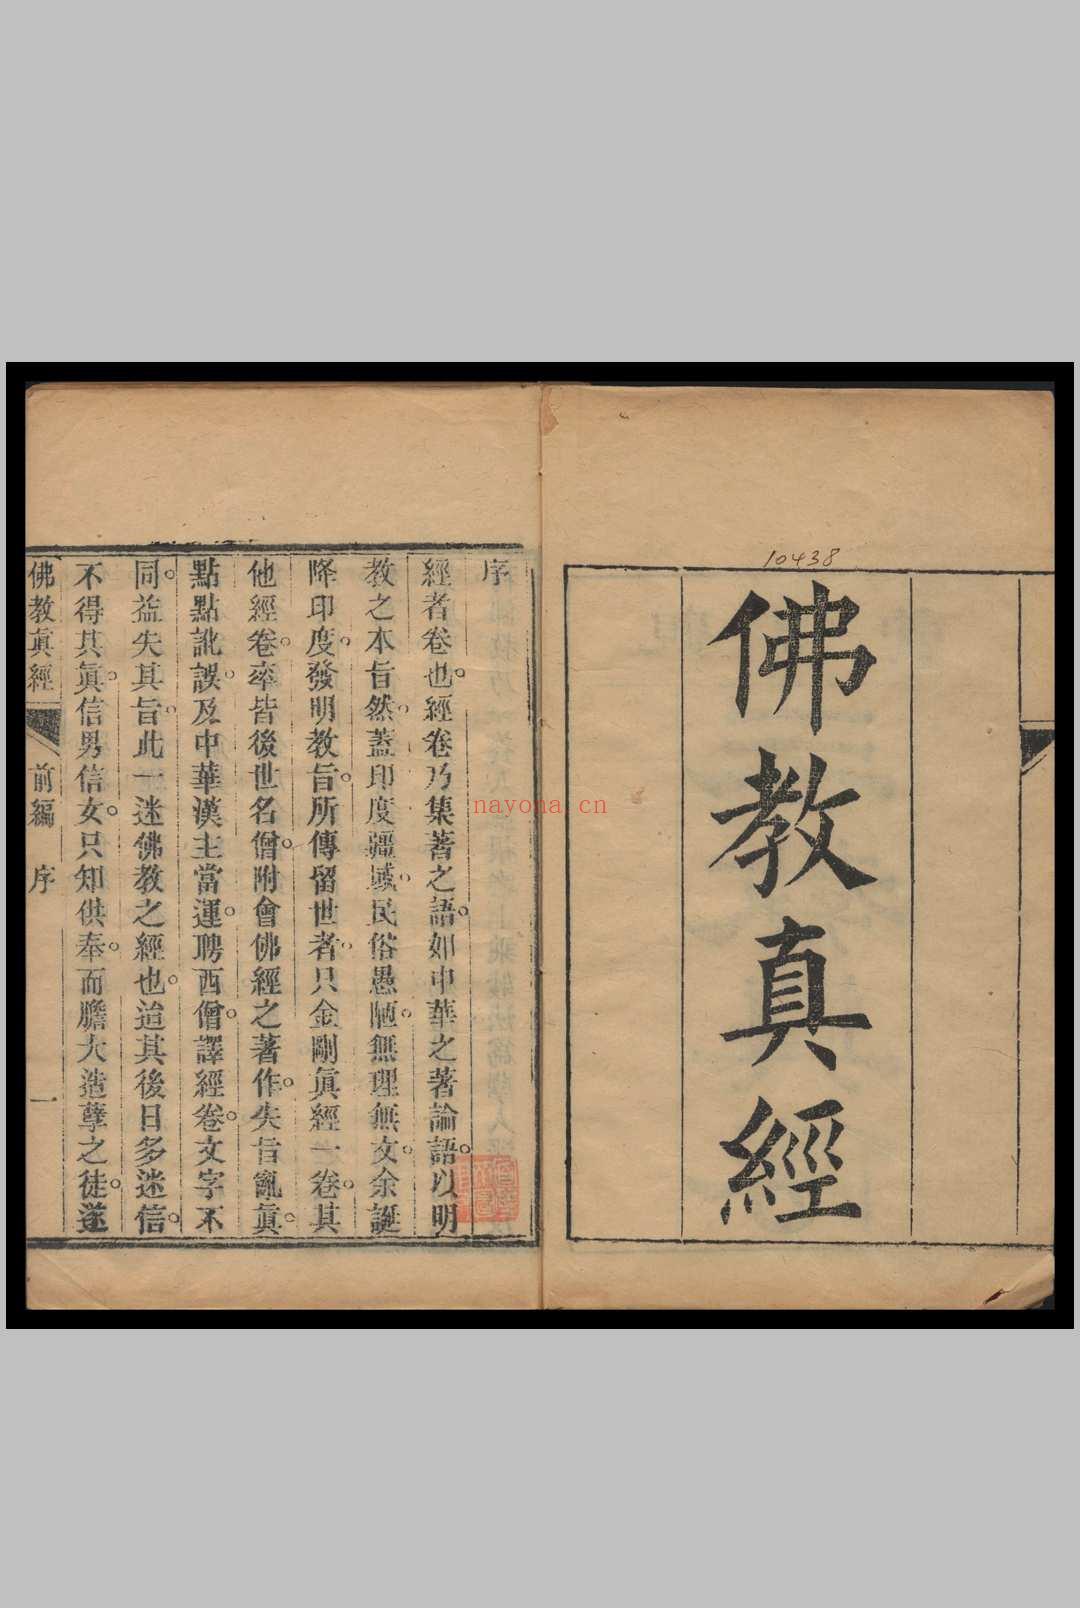 10438
佛教真經
序
經者卷也。經卷乃集著之語。如中華之著論語。以明
教之本旨然。蓋印度疆域。民俗愚陋。無理無文。余誕
降印度。發明教旨。所傳留世者。只金剛眞經一卷。其
他經卷。率皆後世名僧。附會佛經之著作。失旨亂眞。
點點訛誤。及中華漢主當運。聘西僧。譯經卷。文字不
同。益失其旨。此一迷佛教之經也。迨其後日多迷信。
不得其眞。信男信女。只知供奉。而膽大造孽之徒。遂
佛教眞經 前編 序 一
nayona.cn